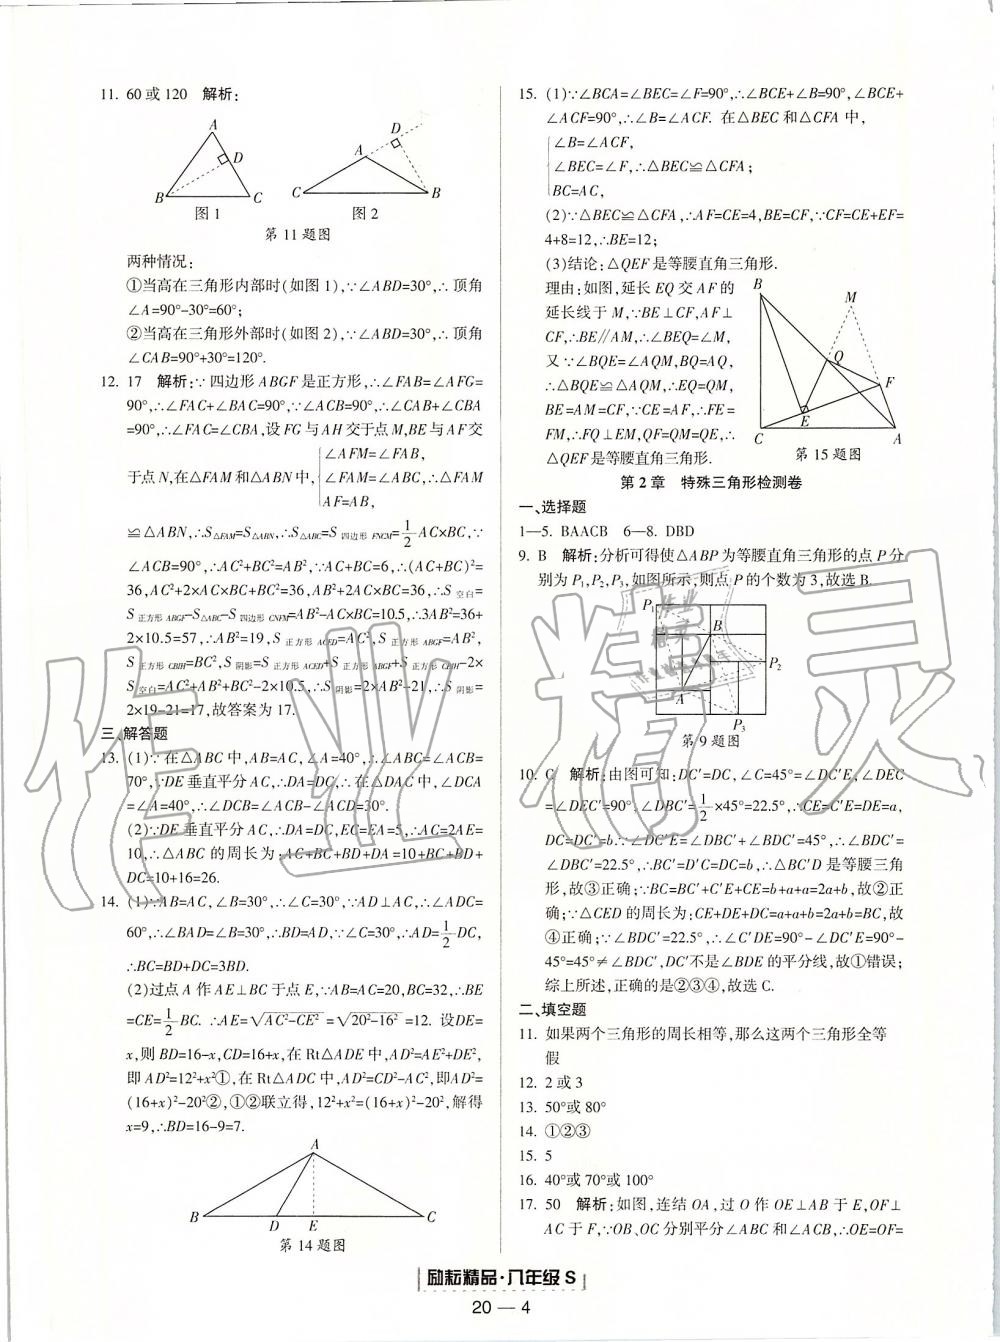 11. 60或120 解析:
A
D
B
C
图1
D
A
C
B
图2
第11题图
两种情况:
①当高在三角形内部时(如图1),∵∠ABD=30°,∴顶角
∠A=90°-30°=60°;
②当高在三角形外部时(如图2),∵∠ABD=30°,∴顶角
∠CAB=90°+30°=120°.
12. 17 解析:∵四边形ABGF是正方形,∴∠FAB=∠AFG=
90°,∴∠FAC+∠BAC=90°,∵∠ACB=90°,∴∠CAB+∠CBA
=90°,∴∠FAC=∠CBA,设FG与AH交于点M,BE与AF交
∠AFM=∠FAB,
于点N,在△FAM和△ABN中,∠FAM=∠ABC,∴△FAM
AF=AB,
≌△ABN,∴S△FAM=S△ABN,∴S△ABC=S四边形FNCM=1/2AC×BC,∵
∠ACB=90°,∴AC²+BC²=AB²,∵AC+BC=6,∴(AC+BC)²=
36,AC²+2×AC×BC+BC²=36,AB²+2AC×BC=36,∴S空白=
S正方形ABGF-S△ABC-S四边形CNFM=AB²-AC×BC=10.5,∴3AB²=36+
2×10.5=57,∴AB²=19,S正方形ACED=AC²,S正方形ABGF=AB²,
S正方形CBIH=BC²,S阴影=S正方形ACED+S正方形ABGF+S正方形CBIH-2×
S空白=AC²+AB²+BC²-2×10.5,∴S阴影=2×AB²-21,∴S阴影=
2×19-21=17,故答案为17.
三、解答题
13. (1)∵在△ABC中,AB=AC,∠A=40°,∴∠ABC=∠ACB=
70°,∵DE垂直平分AC,∴DA=DC,∴在△DAC中,∠DCA
=∠A=40°,∴∠DCB=∠ACB-∠DCA=30°.
(2)∵DE垂直平分AC,∴DA=DC,EC=EA=5,∴AC=2AE=
10,∴△ABC的周长为:AC+BC+BD+DA=10+BC+BD+
DC=10+16=26.
14. (1)∵AB=AC,∠B=30°,∴∠C=30°,∵AD⊥AC,∴∠ADC=
60°,∴∠BAD=∠B=30°,∴BD=AD,∵∠C=30°,∴AD=1/2DC,
∴BC=BD+DC=3BD.
(2)过点A作AE⊥BC于点E,∵AB=AC=20,BC=32,∴BE
=CE=1/2BC. ∴AE=√AC²-CE²=√20²-16²=12. 设DE=
x,则BD=16-x,CD=16+x,在Rt△ADE中,AD²=AE²+DE²,
即AD²=12²+x²①,在Rt△ADC中,AD²=CD²-AC²,即AD²=
(16+x)²-20²②,①②联立得,12²+x²=(16+x)²-20²,解得
x=9,∴BD=16-9=7.
A
B
D
E
C
第14题图
15. (1)∵∠BCA=∠BEC=∠F=90°,∴∠BCE+∠B=90°,∠BCE+
∠ACF=90°,∴∠B=∠ACF. 在△BEC和△CFA中,
∠B=∠ACF,
∠BEC=∠F,∴△BEC≌△CFA;
BC=AC,
(2)∵△BEC≌△CFA,∴AF=CE=4,BE=CF,∵CF=CE+EF=
4+8=12,∴BE=12;
(3)结论:△QEF是等腰直角三角形.
理由:如图,延长EQ交AF的
延长线于M,∵BE⊥CF,AF⊥
CF,∴BE∥AM,∴∠BEQ=∠M,
又∵∠BQE=∠AQM,BQ=AQ,
∴△BQE≌△AQM,∴EQ=QM,
BE=AM=CF,∵CE=AF,∴FE=
FM,∴FQ⊥EM,QF=QM=QE,∴
△QEF是等腰直角三角形.
B
M
Q
F
E
C
A
第15题图
第2章 特殊三角形检测卷
一、选择题
1—5. BAACB 6—8. DBD
9. B 解析:分析可得使△ABP为等腰直角三角形的点P分
别为P₁,P₂,P₃,如图所示,则点P的个数为3,故选B.
P₁
B
P₂
A
P₃
第9题图
10. C 解析:由图可知:DC′=DC,∠C=45°=∠DC′E,∠DEC
=∠DEC′=90°,∠DBC′=1/2×45°=22.5°,∴CE=C′E=DE=a,
DC=DC′=b∴∠DC′E=∠DBC′+∠BDC′=45°,∴∠BDC′=
∠DBC′=22.5°,∴BC′=D′C=DC=b,∴△BC′D是等腰三角
形,故③正确;∵BC=BC′+C′E+CE=b+a+a=2a+b,故②正
确;∵△CED的周长为:CE+DE+DC=a+a+b=2a+b=BC,故
④正确;∵∠BDC′=22.5°,∴∠C′DE=90°-∠DC′E=90°-
45°=45°≠∠BDC′,DC′不是∠BDE的平分线,故①错误;
综上所述,正确的是②③④,故选C.
二、填空题
11. 如果两个三角形的周长相等,那么这两个三角形全等
假
12. 2或3
13. 50°或80°
14. ①②③
15. 5
16. 40°或70°或100°
17. 50 解析:如图,连结OA,过O作OE⊥AB于E,OF⊥
AC于F,∵OB、OC分别平分∠ABC和∠ACB,∴OE=OF=
励耘精品·八年级S
20—4
作业精灵